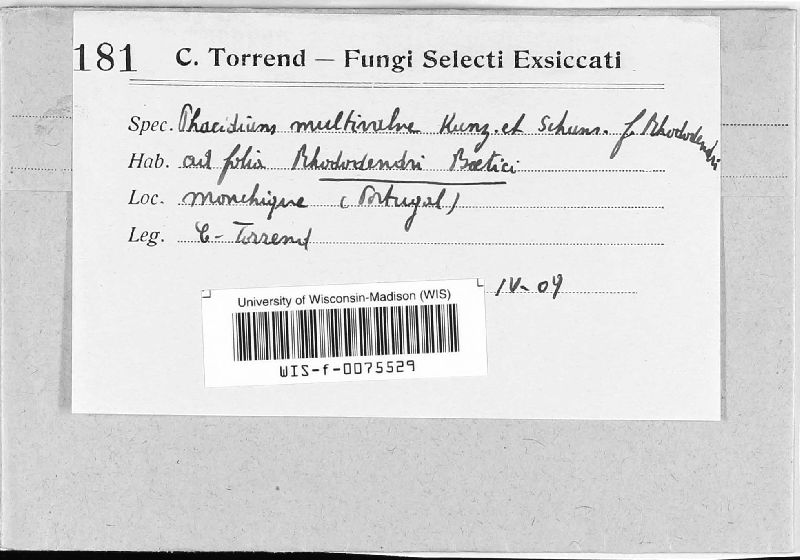 181 C. Torrend — Fungi Selecti Exsiccati
Spec. Phacidium multivalve Kunz. et Schum. f. Rhododendri
Hab. ad folia Rhododendri Bœtici
Loc. Monchique (Portugal)
Leg. C. Torrend
IV-09
University of Wisconsin-Madison (WIS)
WIS-f-0075529